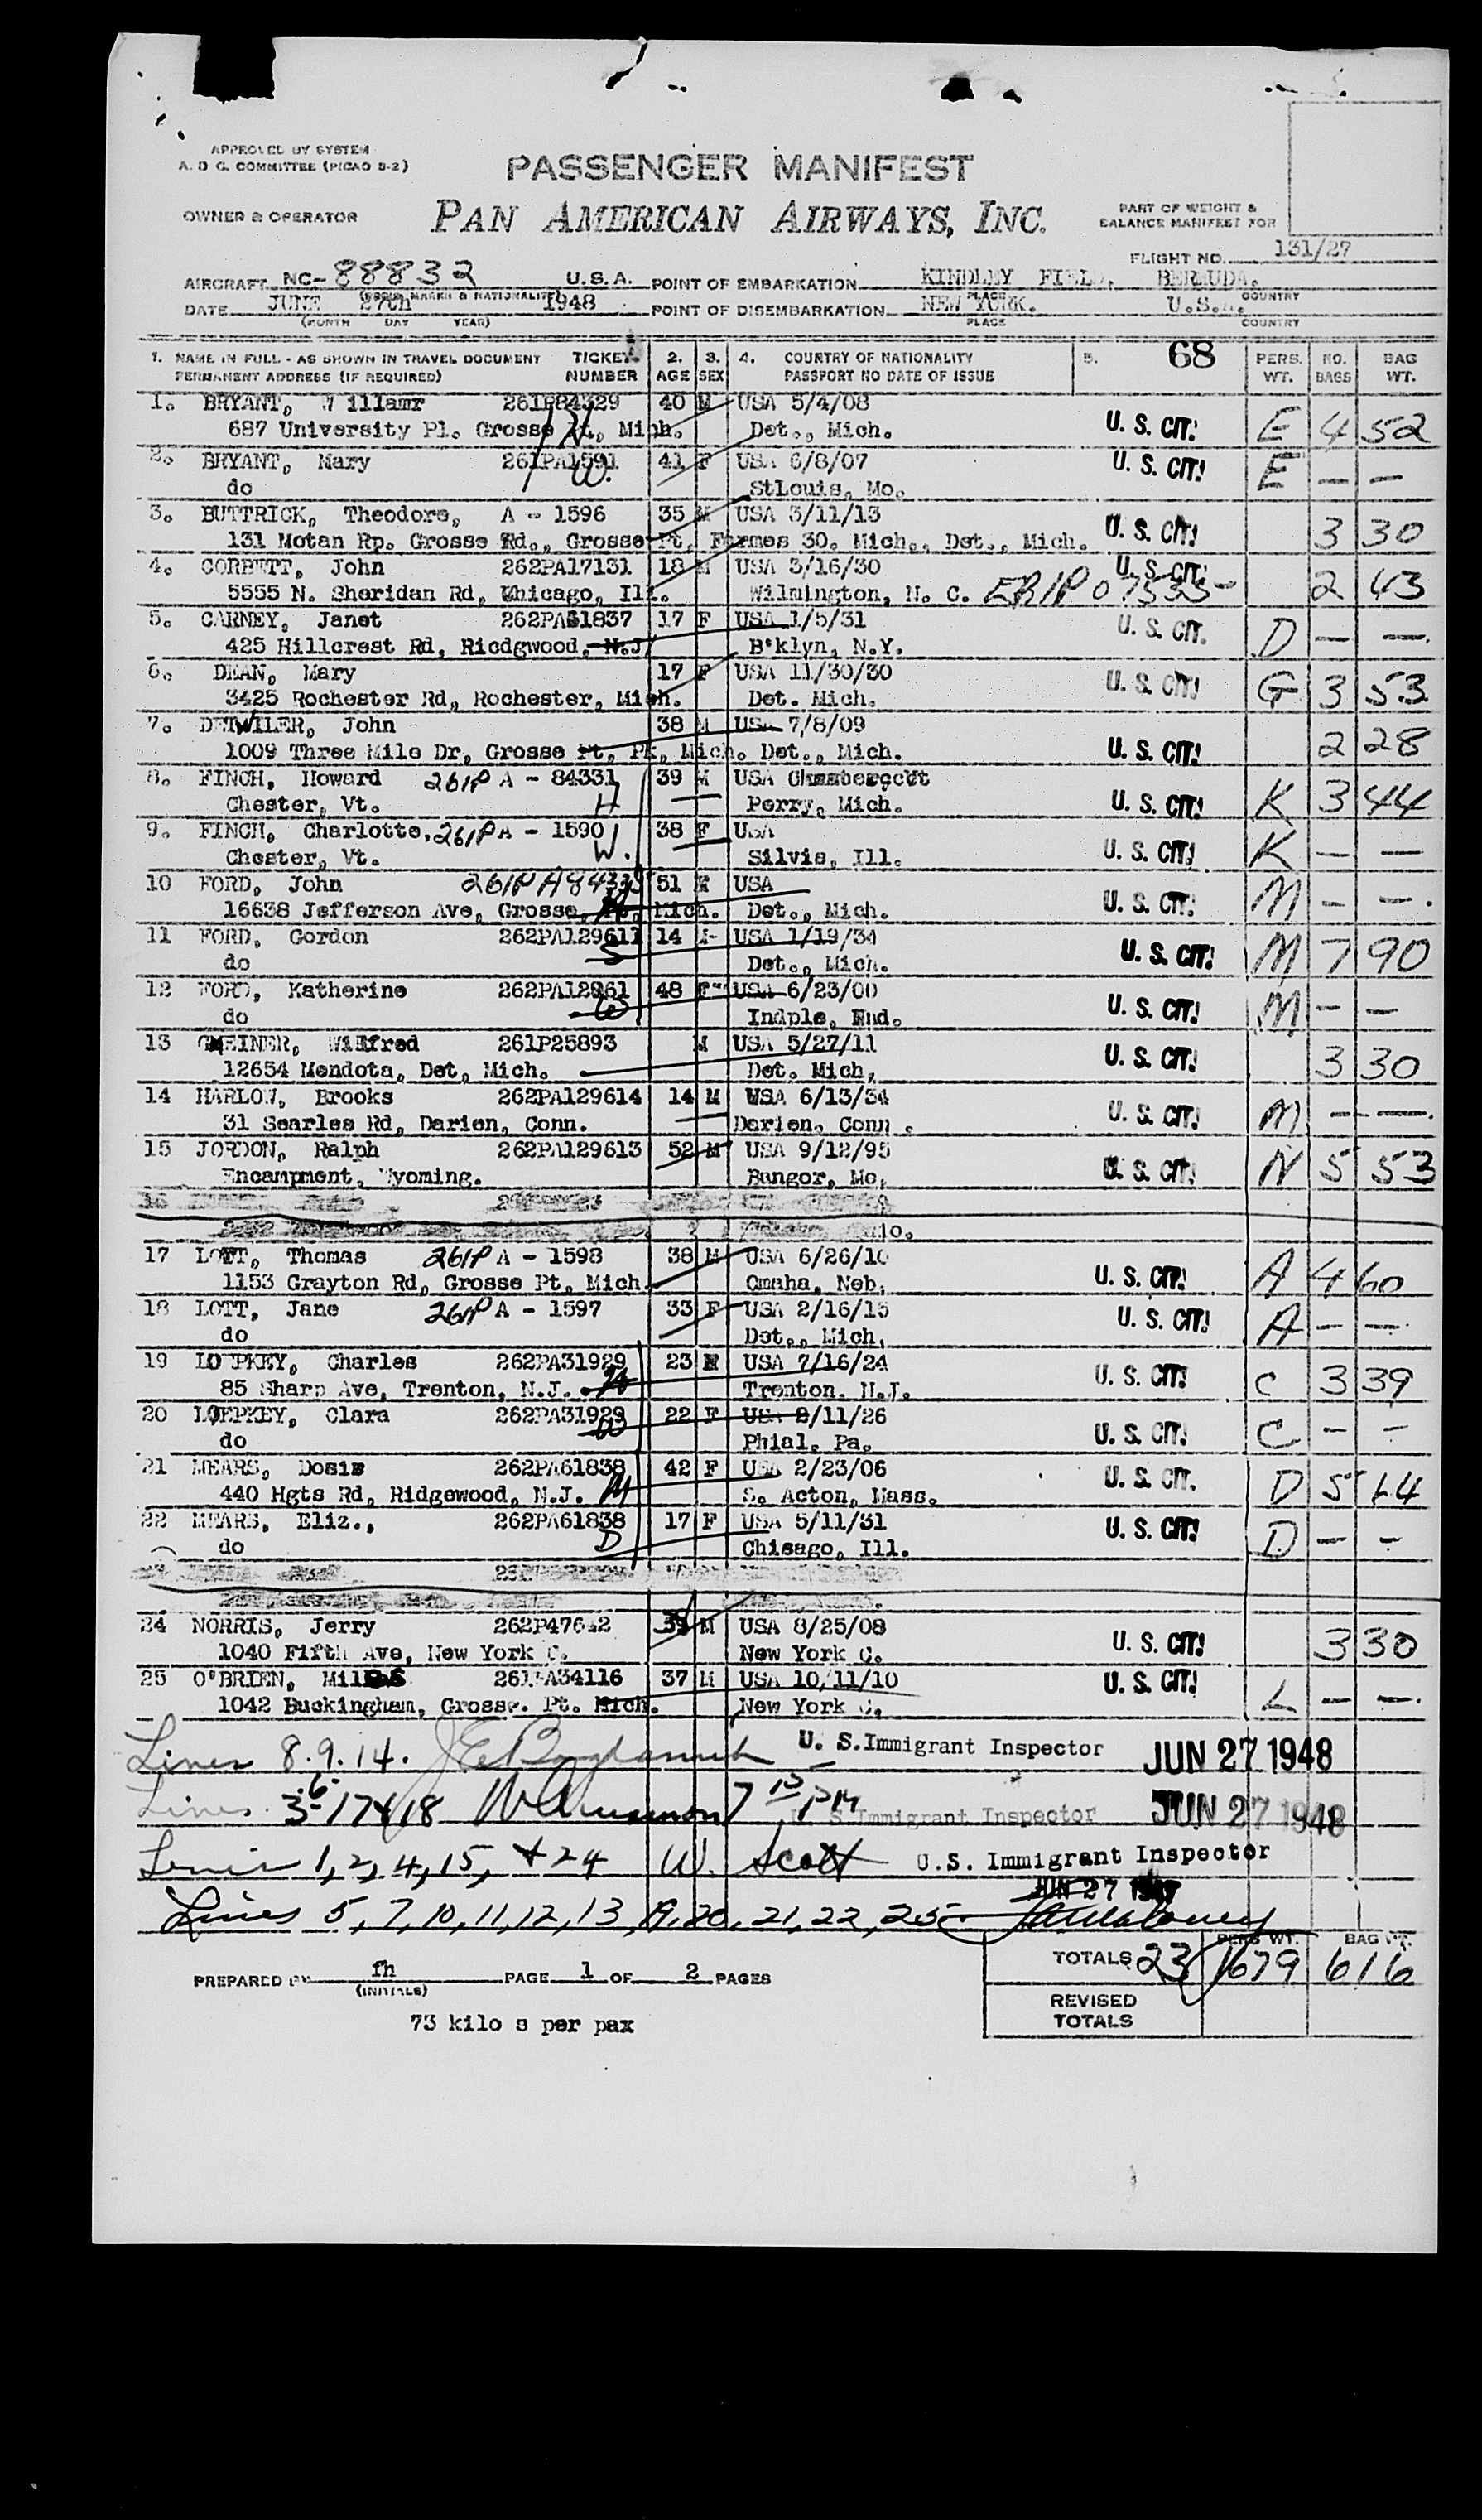 APPROVED BY SYSTEM
A. D G. COMMITTEE (PICAO S-2)
PASSENGER MANIFEST
OWNER & OPERATOR
PAN AMERICAN AIRWAYS, INC.
PART OF WEIGHT &
BALANCE MANIFEST FOR
FLIGHT NO. 131/27
AIRCRAFT NC-88832 U.S.A. POINT OF EMBARKATION KINDLEY FIELD, BERUDA.
(MARKS & NATIONALITY) PLACE COUNTRY
DATE JUNE 27th 1948 POINT OF DISEMBARKATION NEW YORK. U.S.A.
(MONTH DAY YEAR) PLACE COUNTRY
1. NAME IN FULL - AS SHOWN IN TRAVEL DOCUMENT TICKET 2. 3. 4. COUNTRY OF NATIONALITY 5. 68 PERS. NO. BAG
PERMANENT ADDRESS (IF REQUIRED) NUMBER AGE SEX PASSPORT NO DATE OF ISSUE WT. BAGS WT.
1. BRYANT, Willamr 261P84329 40 M USA 5/4/08
687 University Pl. Grosse Pt, Mich. H Det., Mich. U. S. CIT. E 4 52
2. BRYANT, Mary 261PA1591 41 F USA 6/8/07 U. S. CIT. E — —
do W. StLouis, Mo.
3. BUTTRICK, Theodore, A - 1596 35 M USA 3/11/13
131 Motan Rp. Grosse Rd., Grosse Pt, Farmes 30. Mich., Det., Mich. U. S. CIT. 3 30
4. CORBETT, John 262PA17131 18 M USA 3/16/30 U. S. CIT.
5555 N. Sheridan Rd, Chicago, Ill. Wilmington, N. C. 2 43
5. CARNEY, Janet 262PA61837 17 F USA 1/5/31 U. S. CIT. D — —
425 Hillcrest Rd, Ricdgwood, N.J. B'klyn, N.Y.
6. DEAN, Mary 17 F USA 11/30/30 U. S. CIT. G 3 53
3425 Rochester Rd, Rochester, Mich. Det. Mich.
7. DETWILER, John 38 M USA 7/8/09
1009 Three Mile Dr, Grosse Pt, Pk, Mich. Det., Mich. U. S. CIT. 2 28
8. FINCH, Howard 261P A - 84331 39 M USA
Chester, Vt. H Perry, Mich. U. S. CIT. K 3 44
9. FINCH, Charlotte, 261P A - 1590 38 F USA
Chester, Vt. W. Silvis, Ill. U. S. CIT. K — —
10 FORD, John 261PA84335 51 M USA
16638 Jefferson Ave, Grosse, Pt, Mich. Det., Mich. U. S. CIT. M — —
11 FORD, Gordon 262PA129611 14 M USA 1/19/34
do S Det., Mich. U. S. CIT. M 7 90
12 FORD, Katherine 262PA12961 48 F USA 6/23/00
do W Indpls, Ind. U. S. CIT. M — —
13 GMEINER, Wilfred 261P25893 M USA 5/27/11
12654 Mendota, Det, Mich. Det. Mich, U. S. CIT. 3 30
14 HARLOW, Brooks 262PA129614 14 M USA 6/13/34
31 Searles Rd, Darien, Conn. Darien, Conn. U. S. CIT. M — —
15 JORDON, Ralph 262PA129613 52 M USA 9/12/95
Encampment, Wyoming. Bangor, Me, U. S. CIT. N 5 53
16
17 LOTT, Thomas 261P A - 1598 38 M USA 6/26/10
1153 Grayton Rd, Grosse Pt, Mich. Omaha, Neb. U. S. CIT. A 4 60
18 LOTT, Jane 261P A - 1597 33 F USA 2/16/15
do Det., Mich. U. S. CIT. A — —
19 LOEPKEY, Charles 262PA31929 23 M USA 7/16/24
85 Sharp Ave, Trenton, N.J. H Trenton. N.J. U. S. CIT. C 3 39
20 LOEPKEY, Clara 262PA31929 22 F USA 8/11/26
do W Phial. Pa. U. S. CIT. C — —
21 MEARS, Dosis 262PA61838 42 F USA 2/23/06
440 Hgts Rd, Ridgewood, N.J. M S. Acton, Mass. U. S. CIT. D 5 64
22 MEARS, Eliz., 262PA61838 17 F USA 5/11/31
do D Chisago, Ill. U. S. CIT. D — —
24 NORRIS, Jerry 262P47642 39 M USA 8/25/08
1040 Fifth Ave, New York C. New York C. U. S. CIT. 3 30
25 O'BRIEN, Miles 261PA34116 37 M USA 10/11/10
1042 Buckingham, Grosse. Pt. Mich. New York C. U. S. CIT. L — —
Lines 8.9.14. U. S. Immigrant Inspector JUN 27 1948
Lines 3-6-17 & 18 7 15 PM U S Immigrant Inspector JUN 27 1948
Lines 1, 2, 4, 15, + 24 W. Scott U.S. Immigrant Inspector
JUN 27
Lines 5, 7, 10, 11, 12, 13, 19, 20, 21, 22, 25
PERS WT. BAG WT.
TOTALS 23 1679 616
PREPARED BY fh PAGE 1 OF 2 PAGES
(INITIALS)
REVISED
TOTALS
73 kilo s per pax